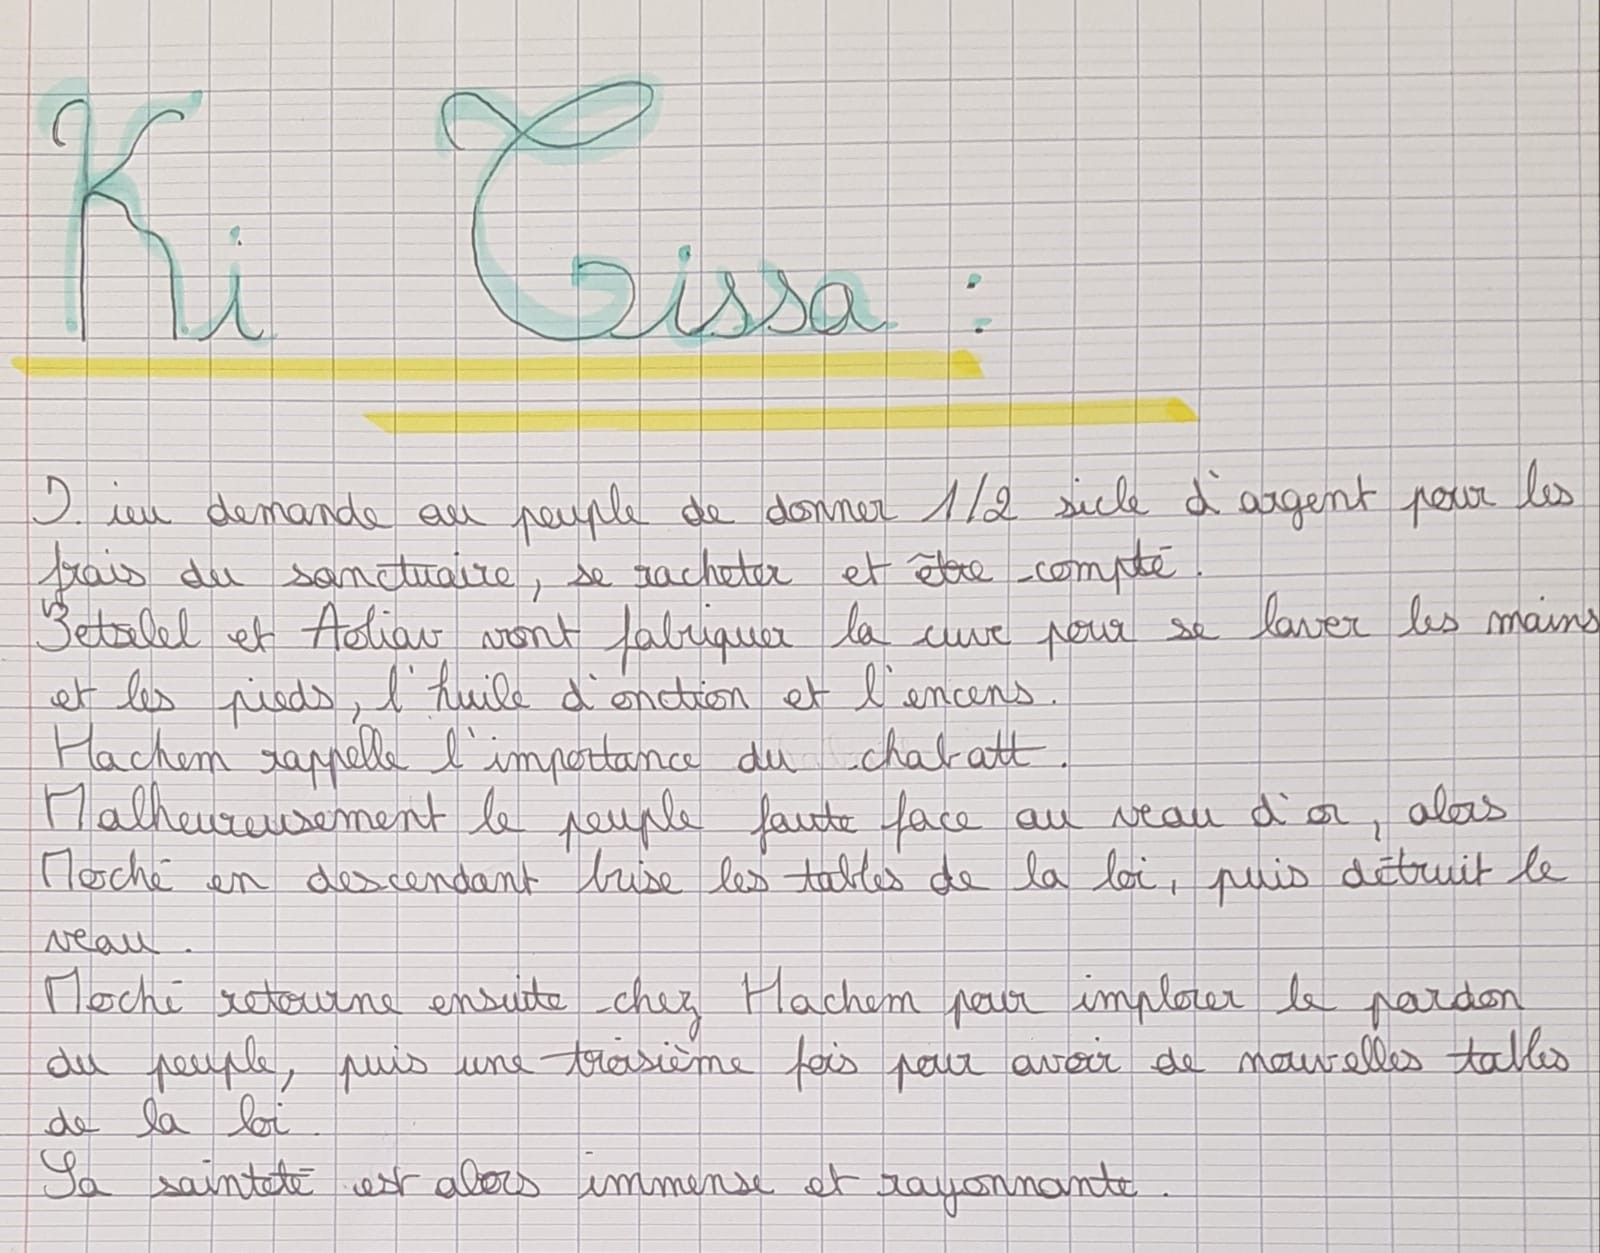 Ki Tissa :
D.ieu demande au peuple de donner 1/2 sicle d'argent pour les
frais du sanctuaire, se racheter et être compté.
Betsalel et Aoliav vont fabriquer la cuve pour se laver les mains
et les pieds, l'huile d'onction et l'encens.
Hachem rappelle l'importance du chabatt.
Malheureusement le peuple faute face au veau d'or, alors
Moché en descendant brise les tables de la loi, puis détruit le
veau.
Moché retourne ensuite chez Hachem pour implorer le pardon
du peuple, puis une troisième fois pour avoir de nouvelles tables
de la loi.
Sa sainteté est alors immense et rayonnante.